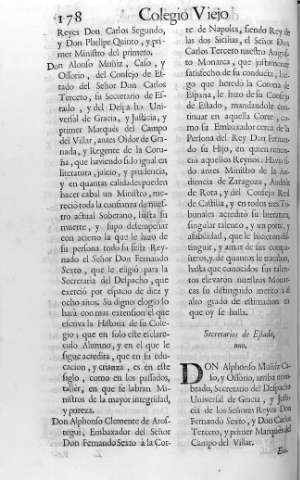 178 Colegio Viejo
Reyes Don Carlos Segundo,
y Don Phelipe Quinto, y pri-
mer Ministro del primero.
Don Alonso Muñiz, Caso, y
Ossorio, del Consejo de Esta-
do del Señor Don Carlos
Tercero, su Secretario de Es-
tado, y del Despacho Uni-
versal de Gracia, y Justicia, y
primer Marqués del Campo
del Villar, antes Oidor de Gra-
nada, y Regente de la Coru-
ña, que haviendo sido igual en
literatura, juicio, y prudencia,
y en quantas calidades pueden
hacer cabal un Ministro, me-
reció toda la confianza de nues-
tro actual Soberano, hasta su
muerte, y supo desempeñar
con acierto la que le hizo de
su persona toda su feliz Rey-
nado el Señor Don Fernando
Sexto, que le eligió para la
Secretaria del Despacho, que
exerció por espacio de diez y
ocho años. Su digno elogio lo
hará con mas extension el que
escriva la Historia de su Cole-
gio; que en solo este esclare-
cido Alumno, y en el que le
sigue acredita, que en su edu-
cacion, y crianza, es en este
siglo, como en los passados,
taller, en que se labran Mi-
nistros de la mayor integridad,
y pureza.
Don Alphonso Clemente de Aros-
tegui, Embaxador del Señor
Don Fernando Sexto à la Cor-
te de Napoles, siendo Rey de
las dos Sicilias, el Señor Don
Carlos Tercero nuestro Augus-
to Monarca, que justamente
satisfecho de su conducta, lue-
go que heredó la Corona de
España, le hizo de su Consejo
de Estado, mandandole con-
tinuar en aquella Corte, co-
mo su Embaxador cerca de la
Persona del Rey Don Fernan-
do su Hijo, en quien renun-
ció aquellos Reynos. Havia si-
do antes Ministro de la Au-
diencia de Zaragoza, Auditor
de Rota, y del Consejo Real
de Castilla, y en todos tres Tri-
bunales acreditó su literatura,
singular talento, y un porte, y
afabilidad, que le hicieron dis-
tinguir, y amar de sus compa-
ñeros, y de quantos le trataban,
hasta que conocidos sus talen-
tos elevaron nuestros Monar-
cas su distinguido merito à el
alto grado de estimacion en
que oy se halla.
Secretarios de Estado,
uno.
DON Alphonso Muñiz Ca-
so, y Ossorio, arriba nom-
brado, Secretario del Despacho
Universal de Gracia, y Justi-
cia de los Señores Reyes Don
Fernando Sexto, y Don Carlos
Tercero, y primer Marqués del
Campo del Villar.